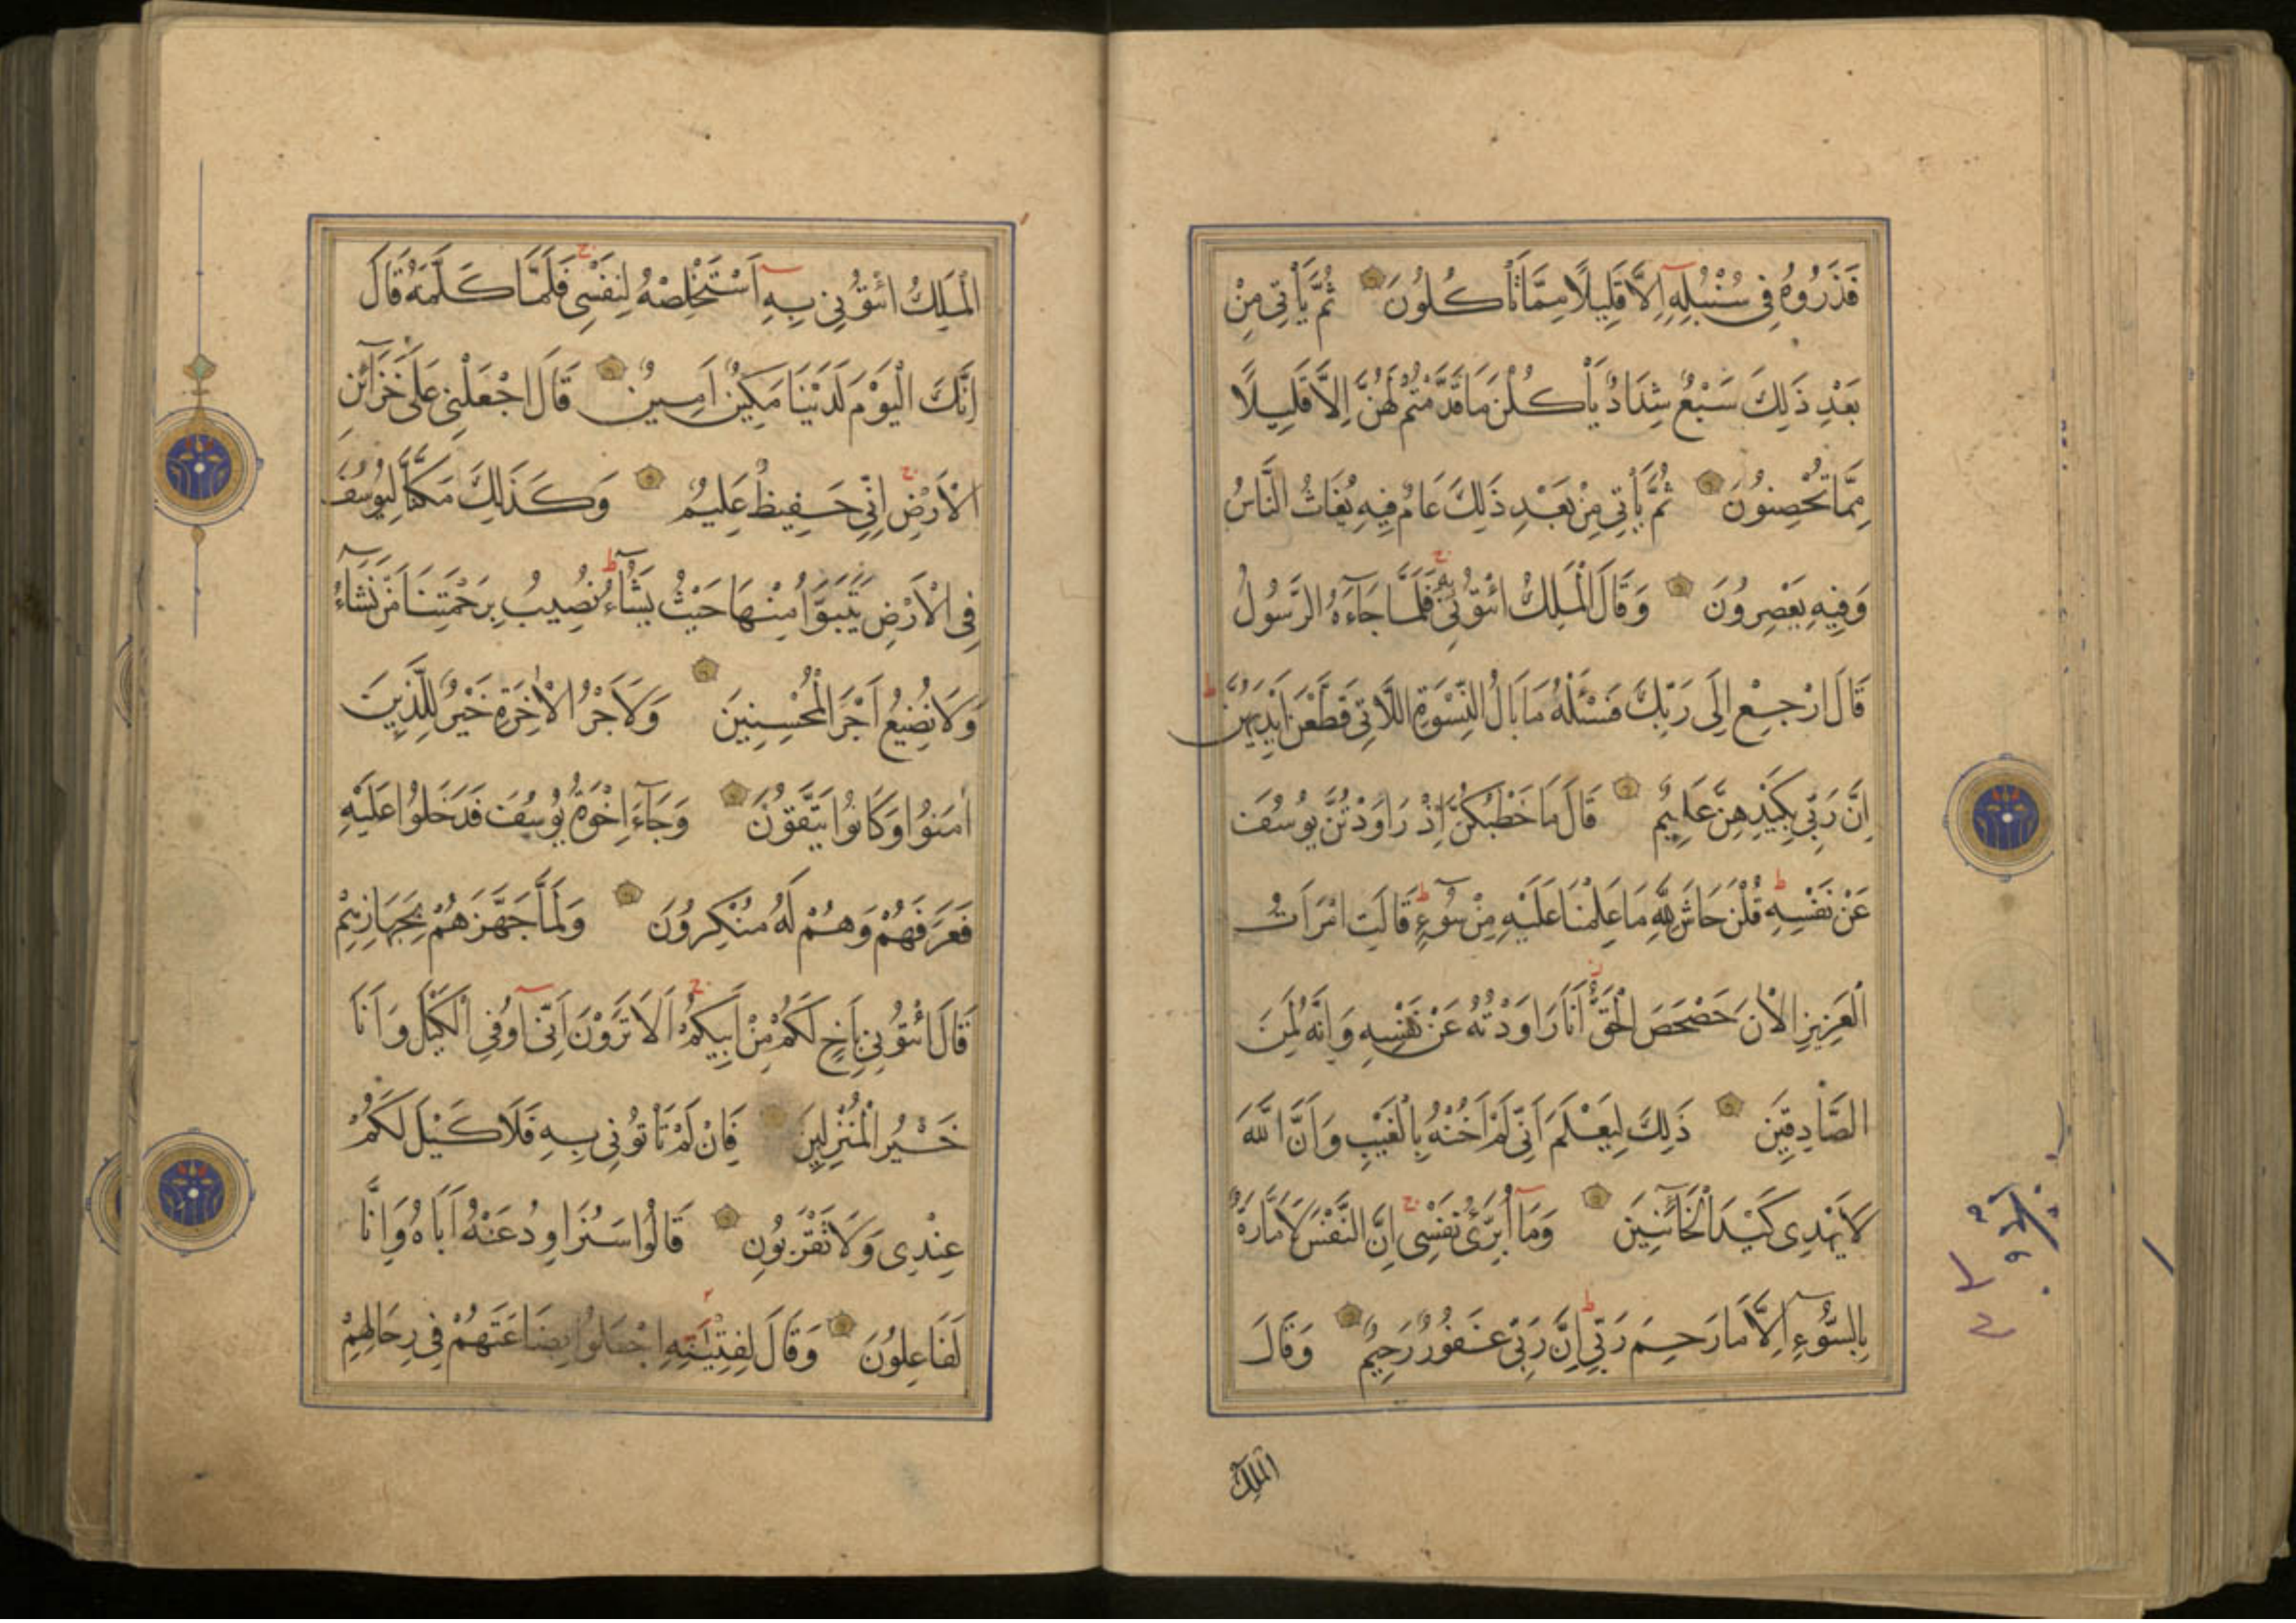 فَذَرُوهُ فِى سُنْبُلِهِ اِلَّا قَلِيلًا مِمَّا تَأْكُلُونَ ثُمَّ يَأْتِى مِنْ
بَعْدِ ذَلِكَ سَبْعٌ شِدَادٌ يَأْكُلْنَ مَا قَدَّمْتُمْ لَهُنَّ اِلَّا قَلِيلًا
مِمَّا تُحْصِنُونَ ثُمَّ يَأْتِى مِنْ بَعْدِ ذَلِكَ عَامٌ فِيهِ يُغَاثُ النَّاسُ
وَفِيهِ يَعْصِرُونَ وَقَالَ الْمَلِكُ ائْتُونِى بِهِ فَلَمَّا جَاءَهُ الرَّسُولُ
قَالَ ارْجِعْ اِلَى رَبِّكَ فَسْئَلْهُ مَا بَالُ النِّسْوَةِ اللَّاتِى قَطَّعْنَ اَيْدِيَهُنَّ
اِنَّ رَبِّى بِكَيْدِهِنَّ عَلِيمٌ قَالَ مَا خَطْبُكُنَّ اِذْ رَاوَدْتُنَّ يُوسُفَ
عَنْ نَفْسِهِ قُلْنَ حَاشَ لِلَّهِ مَا عَلِمْنَا عَلَيْهِ مِنْ سُوءٍ قَالَتِ امْرَاَتُ
الْعَزِيزِ الْاٰنَ حَصْحَصَ الْحَقُّ اَنَا رَاوَدْتُهُ عَنْ نَفْسِهِ وَاِنَّهُ لَمِنَ
الصَّادِقِينَ ذَلِكَ لِيَعْلَمَ اَنِّى لَمْ اَخُنْهُ بِالْغَيْبِ وَاَنَّ اللّٰهَ
لَا يَهْدِى كَيْدَ الْخَائِنِينَ وَمَا اُبَرِّئُ نَفْسِى اِنَّ النَّفْسَ لَاَمَّارَةٌ
بِالسُّوءِ اِلَّا مَا رَحِمَ رَبِّى اِنَّ رَبِّى غَفُورٌ رَحِيمٌ وَقَالَ
الملك
الْمَلِكُ ائْتُونِى بِهِ اَسْتَخْلِصْهُ لِنَفْسِى فَلَمَّا كَلَّمَهُ قَالَ
اِنَّكَ الْيَوْمَ لَدَيْنَا مَكِينٌ اَمِينٌ قَالَ اجْعَلْنِى عَلَى خَزَائِنِ
الْاَرْضِ اِنِّى حَفِيظٌ عَلِيمٌ وَكَذَلِكَ مَكَّنَّا لِيُوسُفَ
فِى الْاَرْضِ يَتَبَوَّاُ مِنْهَا حَيْثُ يَشَاءُ نُصِيبُ بِرَحْمَتِنَا مَنْ نَشَاءُ
وَلَا نُضِيعُ اَجْرَ الْمُحْسِنِينَ وَلَاَجْرُ الْاٰخِرَةِ خَيْرٌ لِلَّذِينَ
اٰمَنُوا وَكَانُوا يَتَّقُونَ وَجَاءَ اِخْوَةُ يُوسُفَ فَدَخَلُوا عَلَيْهِ
فَعَرَفَهُمْ وَهُمْ لَهُ مُنْكِرُونَ وَلَمَّا جَهَّزَهُمْ بِجَهَازِهِمْ
قَالَ ائْتُونِى بِاَخٍ لَكُمْ مِنْ اَبِيكُمْ اَلَا تَرَوْنَ اَنِّى اُوفِى الْكَيْلَ وَاَنَا
خَيْرُ الْمُنْزِلِينَ فَاِنْ لَمْ تَأْتُونِى بِهِ فَلَا كَيْلَ لَكُمْ
عِنْدِى وَلَا تَقْرَبُونِ قَالُوا سَنُرَاوِدُ عَنْهُ اَبَاهُ وَاِنَّا
لَفَاعِلُونَ وَقَالَ لِفِتْيَتِهِ اجْعَلُوا بِضَاعَتَهُمْ فِى رِحَالِهِمْ